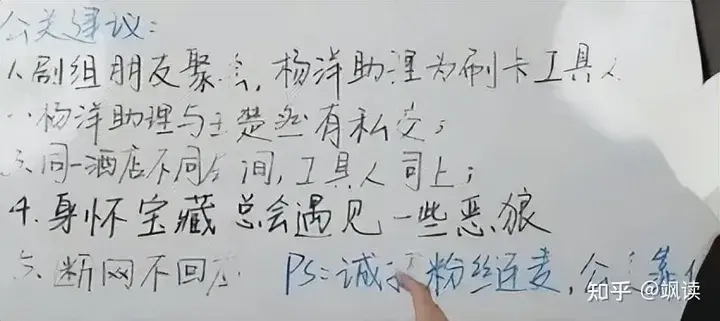 公关建议:
1.剧组朋友聚会,杨洋助理为刷卡工具人
杨洋助理与王楚然有私交;
3.同一酒店不同房间,工具人同上;
4.身怀宝藏总会遇见一些恶狼
5.断网不回应 PS:诚 粉丝连麦,公 靠
知乎 @飒读